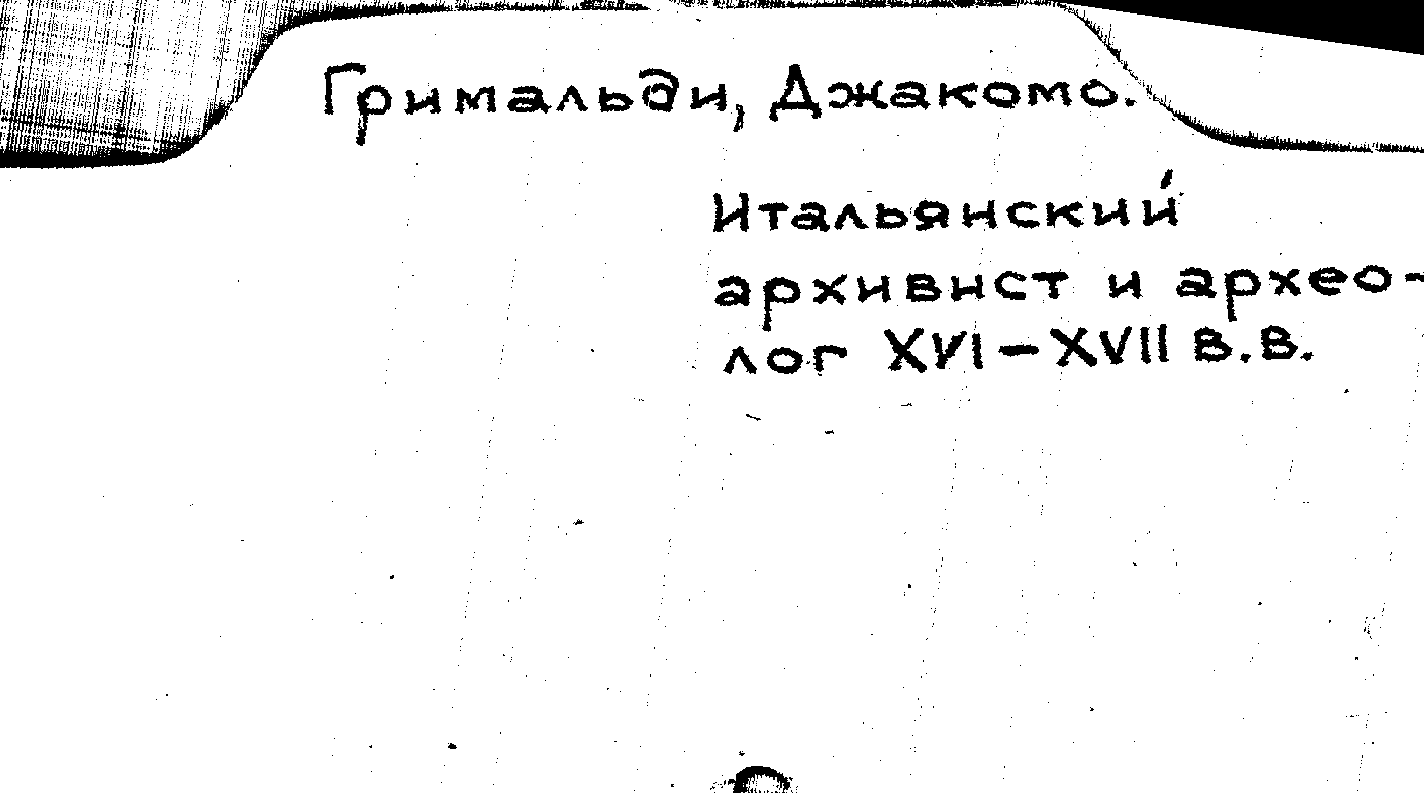 Гримальди, Джакомо.
Итальянский
архивист и архео-
лог XVI–XVII в.в.